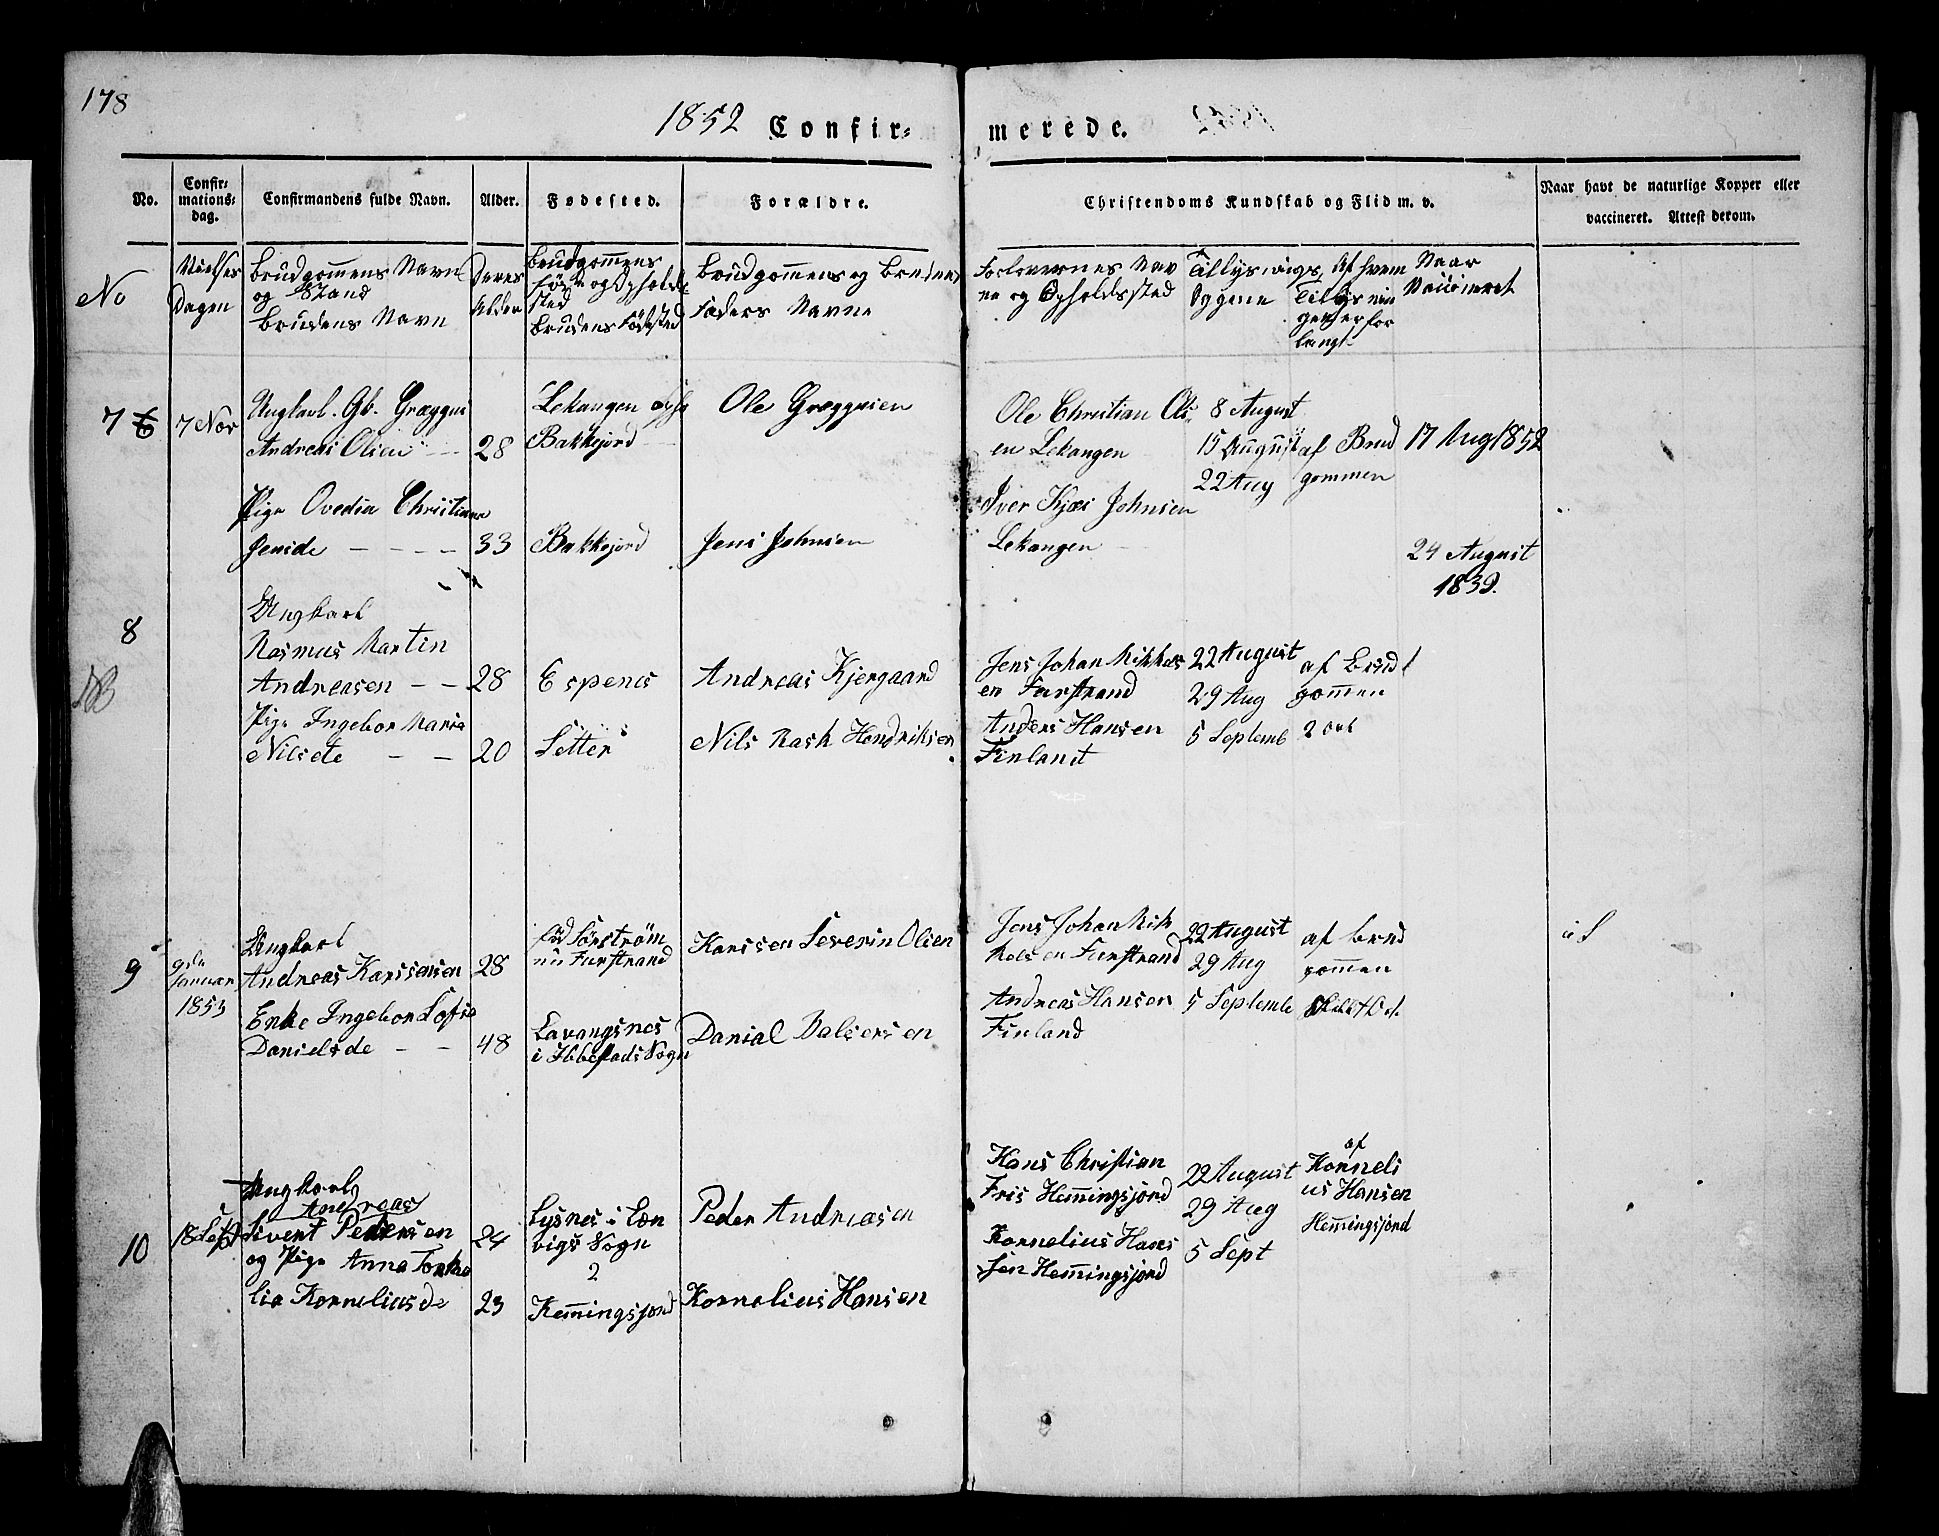 178
1852 Confir-
merede.
No.
Confir-
mations-
dag.
Confirmandens fulde Navn.
Alder.
Fødested.
Forældre.
Christendoms Kundskab og Flid m. v.
Naar havt de naturlige Kopper eller
vaccineret. Attest derom.
No
Vielses
Dagen
Brudgommens Navn
og Stand
Brudens Navn
Deres
Alder
Brudgommens
sted
Brudens Födested
Brudgommens og Brudens
Faders Navne
Forlovernes Nav
ne og Opholdssted
Tillysnings
Af hvem
Tillysnin
gen er for
langt
Naar
Vaccineret
7
7 Nov
Ungkarl. Gb.
Andreas Olsen
28
Lekangen
Bakkejord
Ole
Ole Christian Ols
en Lekangen
8 August
15 August
22 Aug
af Brud
gommen
17 Aug 1852
Pige Ovedia Christiana
Jensde - - - -
33
Bakkejord
Jens Johnsen
Iver Kjær Johnsen
Lekangen
24 August
1839.
8
Ungkarl
Rasmus Martin
Andreasen - -
28
Espenes
Andreas Kjergaard
Jens Johan Mikkels
en Furstrand
22 August
29 Aug
af Brud
gommen
Pige Ingebor Maria
Nilsde - -
20
Setter
Nils Rask Hendriksen
Anders Hansen
Finland
5 Septemb
2 Ort
9
9de
Januar
1853
Ungkarl
Andreas Karsensen
28
fød Sörström
nu Furstrand
Karssen Severin Olsen
Jens Johan Mik
kels en Furstrand
22 August
29 Aug
af Brud
gommen
Enke Ingebor Sofia
Danielsde - -
48
Lavangsnes
i Ibbestads Sogn
Danial Balsersen
Andreas Hansen
Finland
5 Septemb
10
18 Sept
Ungkarl
Andreas
Sivert Pedersen
24
Lysnes i Len
vigs Sogn
2
Peder Andreasen
Hans Christian
Fris Hemmingsjord
22 August
29 Aug
5 Sept
af
Korneli
us Hansen
Hemmingsjord
og Pige Anna Torke
lia Korneliusde
23
Hemmingsjord
Kornelius Hansen
Kornelius Hans
sen Hemmingsjord